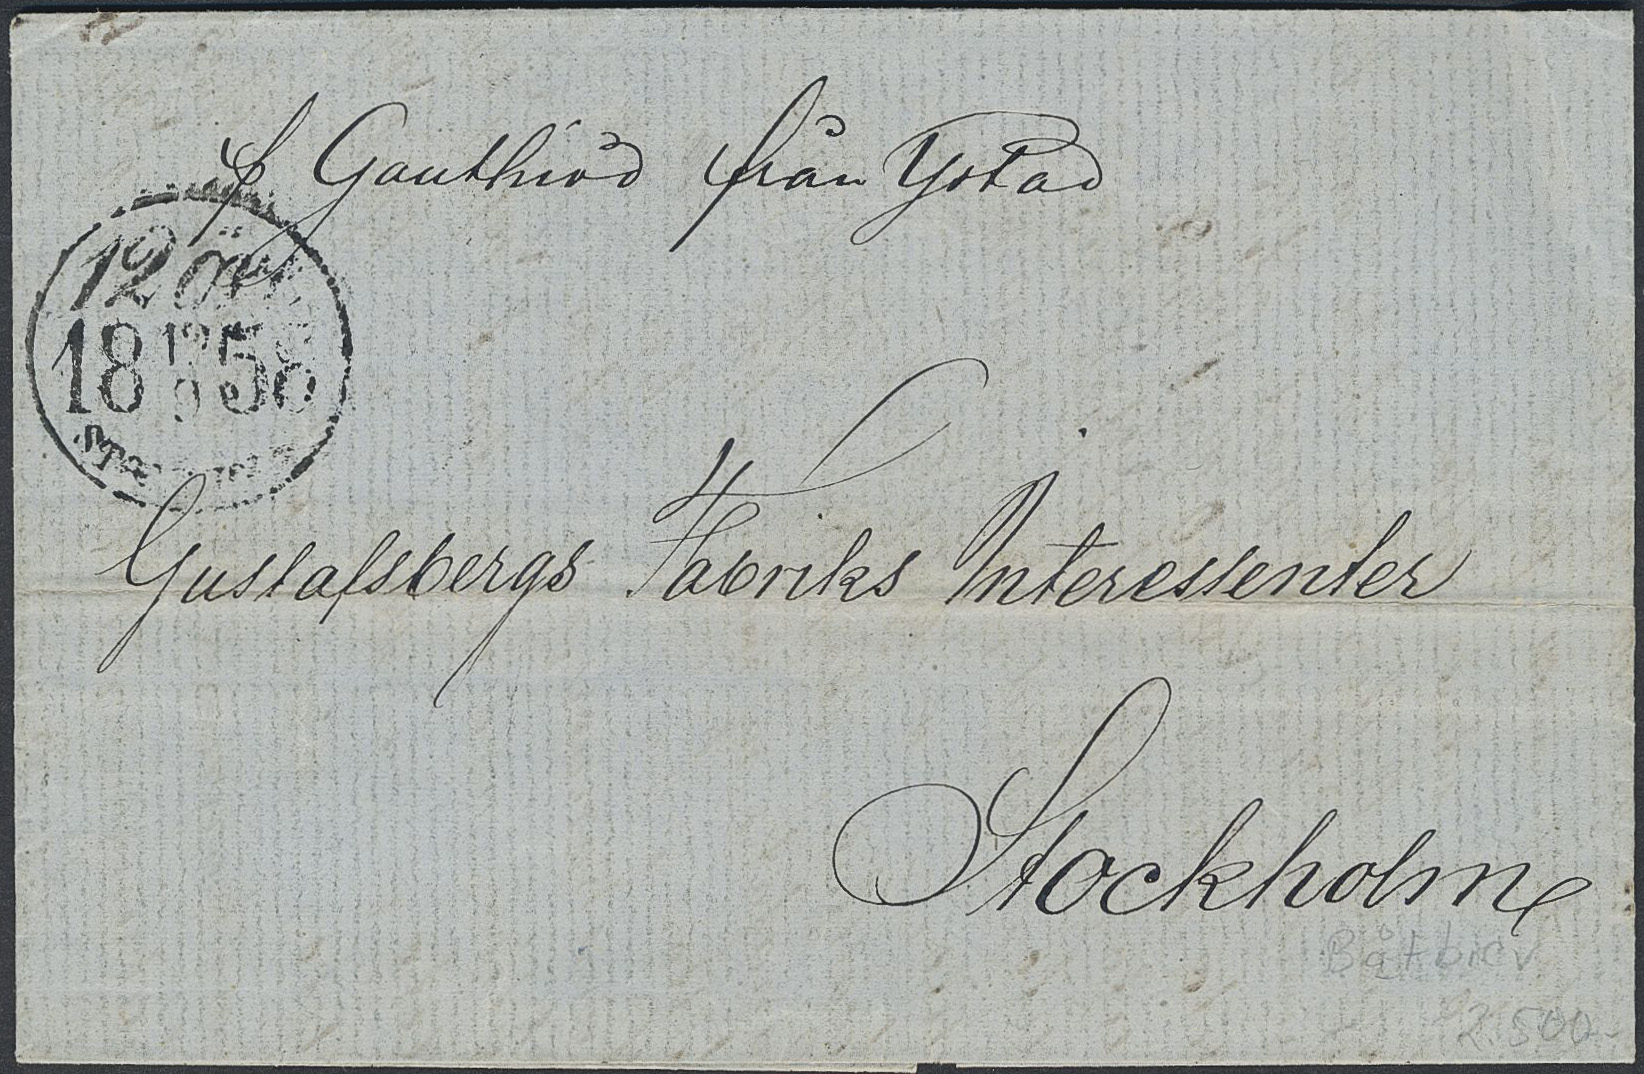 p Gauthiod från Ystad
12 öre
18 58
STOCKHOLM
Gustafsbergs Fabriks Interessenter
Stockholm
Båtbrev
2.500-